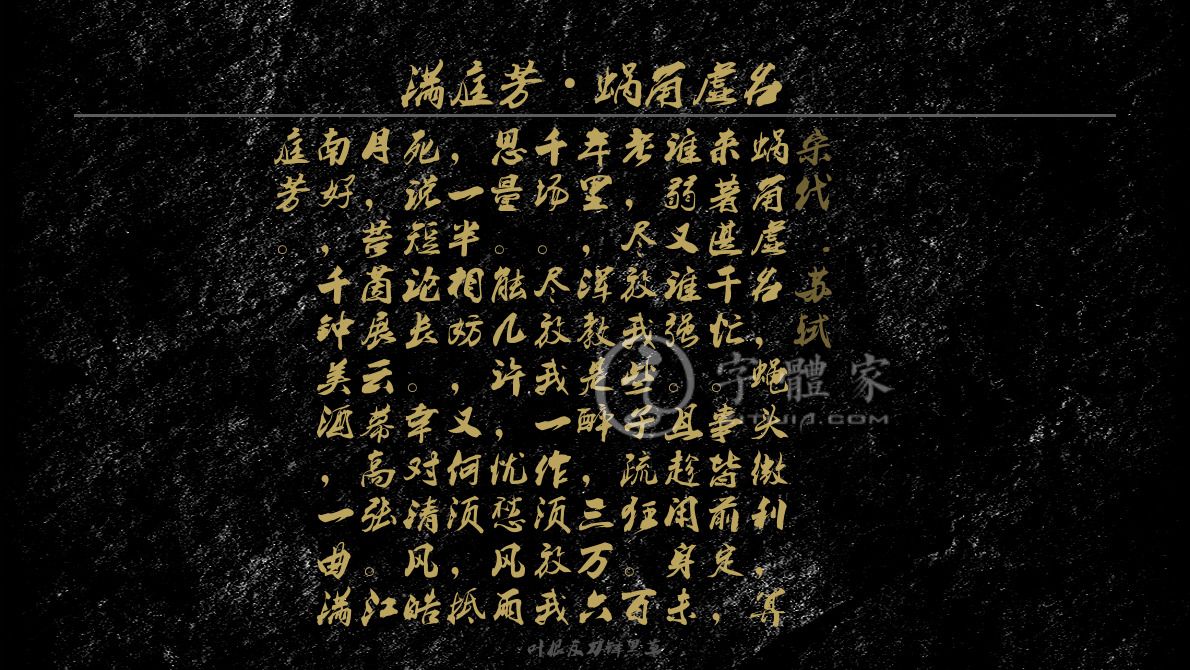 满庭芳·蜗角虚名
宋代.苏轼
蜗角虚名，蝇头微利，算
来著甚干忙。事皆前定，
谁弱又谁强。且趁闲身未
老，尽放我些子疏狂。百
年里，浑教是醉，三万六
千场。尽放我一作须放我
思量。能几许，忧愁风雨
，一半相妨，又何须，抵
死说短论长。对清风皓
月，苦茵展云幕高张。江
南好，千钟美酒，一曲满
庭芳。
字體家
ZITIJIA.COM
叶根友刀锋黑草